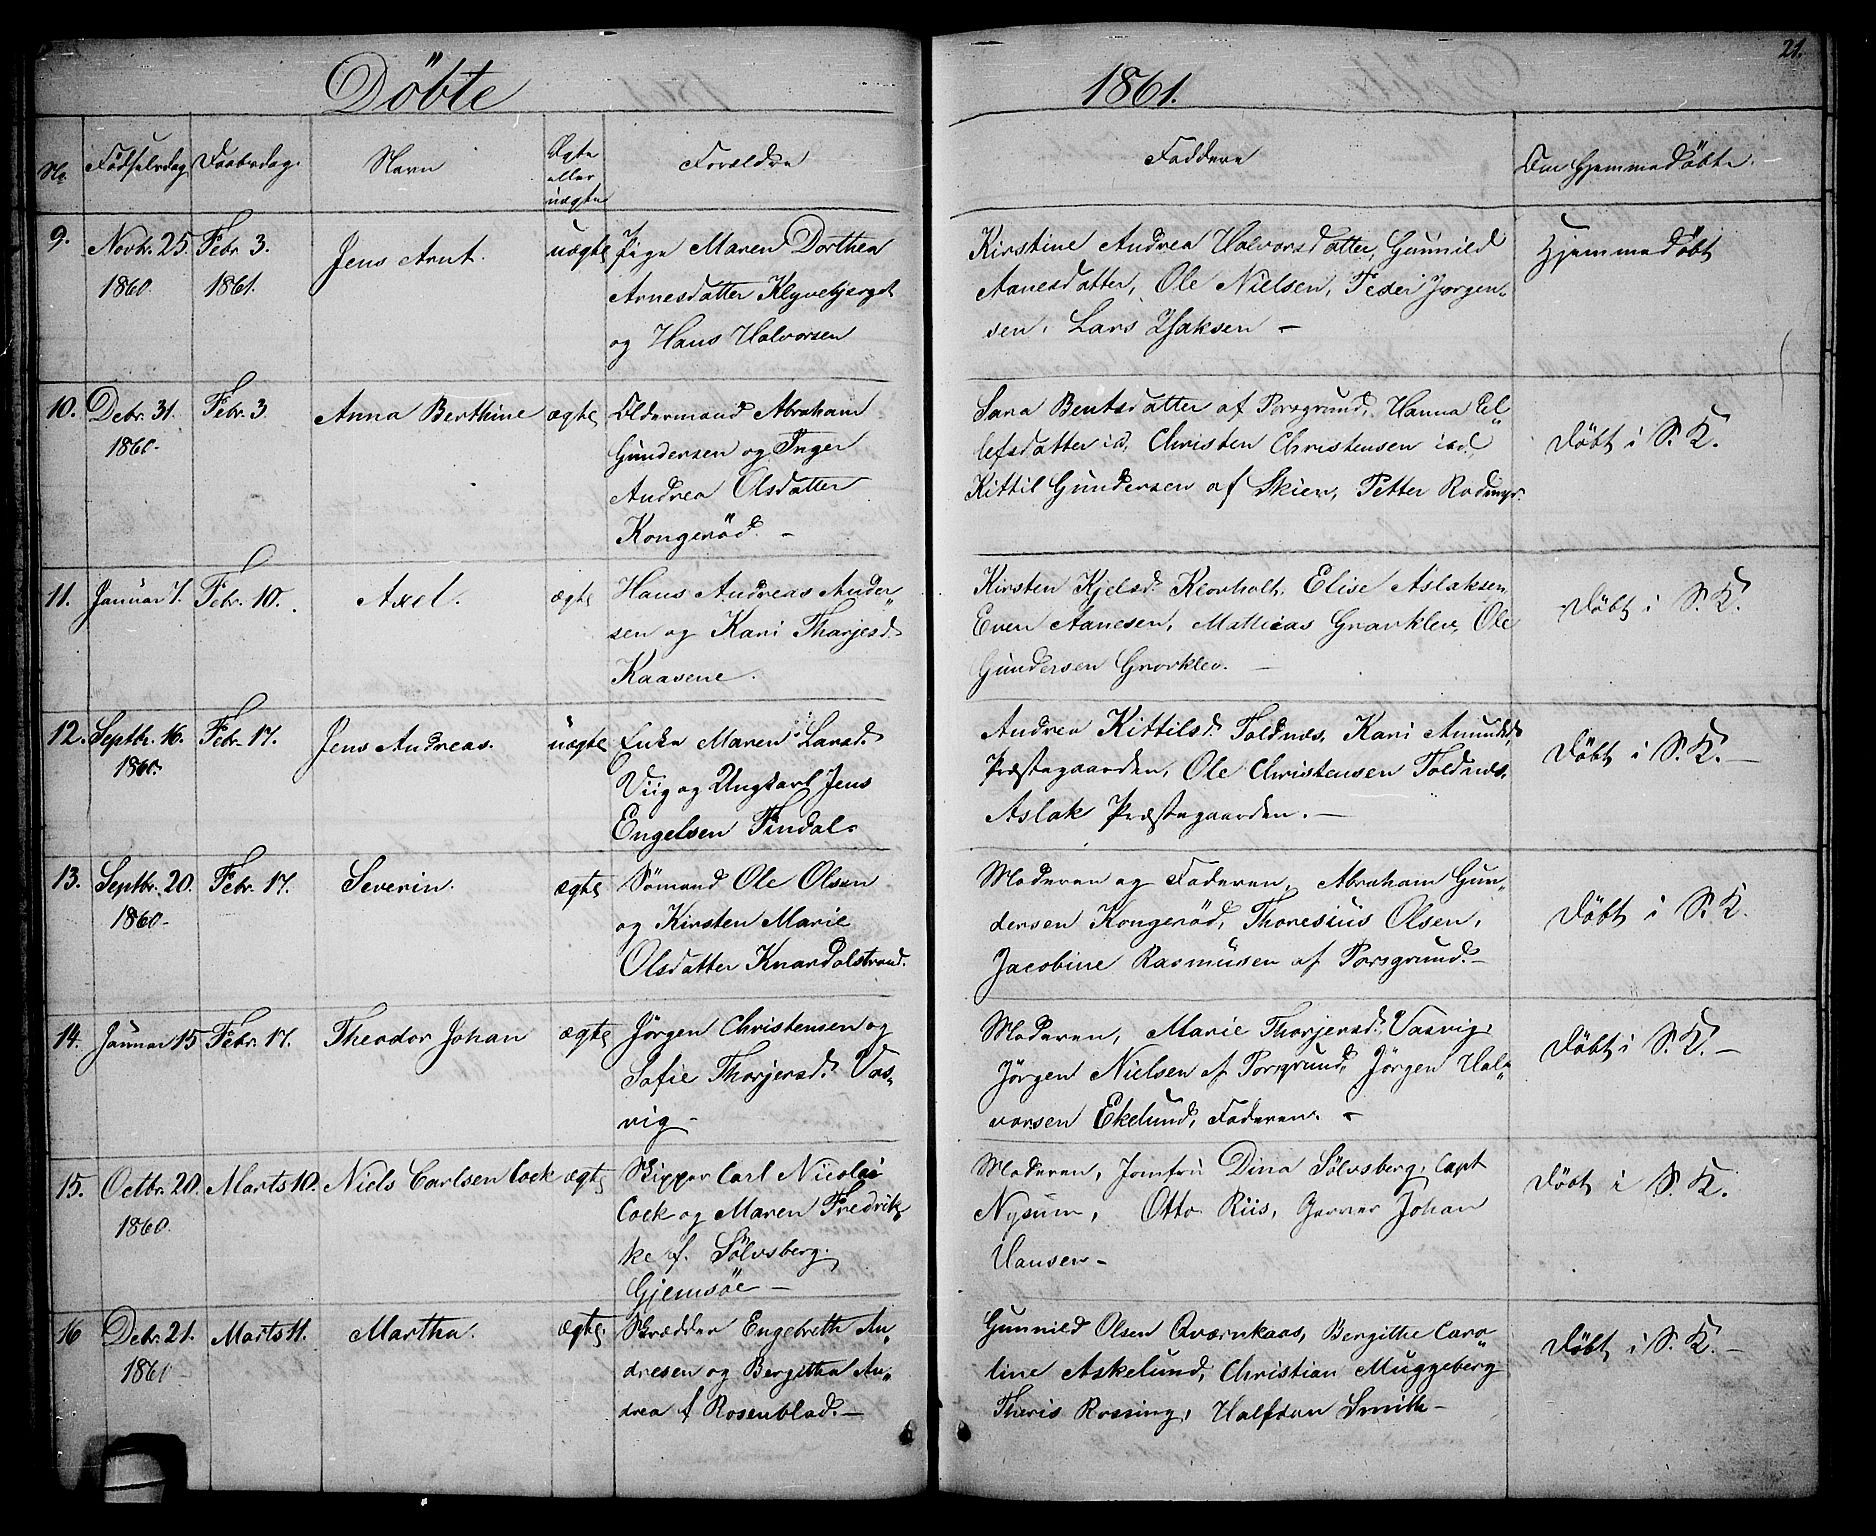 Döbte
1861.
21.
No Födselsdag Daabsdag. Navn Ægte eller uægte Forældre Faddere Om Hjemmedöbte.
9. Novbr. 25. 1860. Febr. 3. 1861. Jens Arnt. uægte
Pige Maren Dorthea
Arnesdatter Klyvebjerget
og Hans Halvorsen
Kirstine Andrea Halvorsdatter, Gunnild
Aanesdatter, Ole Nielsen, Peder Jørgen-
sen, Lars Isaksen –
Hjemmedöbt
10. Debr. 31. 1860. Febr. 3. Anna Berthine ægte
Oldermand Abraham
Gundersen og Inger
Andrea Olsdatter
Kongeröd. –
Sara Bentsdatter af Porsgrund, Hanna El-
lefsdatter ibd, Christen Christensen ibd.
Kittil Gundersen af Skien, Petter Rodmyr.
Döbt i S. K.
11. Januar 7. Febr. 10. Axel. ægte
Hans Andreas Ander-
sen og Kari Tharjesd.
Kaasene.
Kirsten Kjelsd. Klovholt, Elise Aslaksen,
Even Aanesen, Mathias Gravklev, Ole
Gundersen Gravklev. –
Döbt i S. K.
12. Septbr. 16. 1860. Febr. 17. Jens Andreas. uægte
Enke Maren Larsd.
Viig og Ungkarl Jens
Engelsen Findal.
Andrea Kittilsd. Foldnæs, Kari Amundsd.
Præstegaarden, Ole Christensen Foldnæs,
Aslak Præstegaarden. –
Döbt i S. K. –
13. Septbr. 20. 1860. Febr. 17. Severin. ægte
Sömand Ole Olsen
og Kirsten Marie
Olsdatter Knardalstrand.
Moderen og Faderen, Abraham Gun-
dersen Kongeröd, Thoresius Olsen,
Jacobine Rasmussen af Porsgrund. –
Döbt i S. K.
14. Januar 15 Febr. 17. Theodor Johan ægte
Jörgen Christensen og
Sofie Thorjersd. Vas-
vig –
Moderen, Marie Thorjersd. Vasvig,
Jörgen Nielsen af Porsgrund, Jörgen Hal-
vorsen Ekelund, Faderen. –
Döbt i S. K. –
15. Octbr. 20. 1860. Marts 10. Niels Carlsen Cock ægte
Skipper Carl Nicolai
Cock og Maren Fredrik-
ke f. Sölvsberg,
Gjemsöe –
Moderen, Jomfru Dina Sölvsberg, Capt
Nysum, Otto Riis, Garver Johan
Hansen –
Döbt i S. K.
16 Debr. 21. 1860 Marts 11. Martha. ægte.
Skrædder Engebreth An-
dresen og Bergitha An-
drea f Rosenblad. –
Gunnild Olsen Qværnkaas, Bergithe Caro-
line Askelund, Christian Muggeberg
Theris Rossing, Halfdan Smith –
Döbt i S. K. –